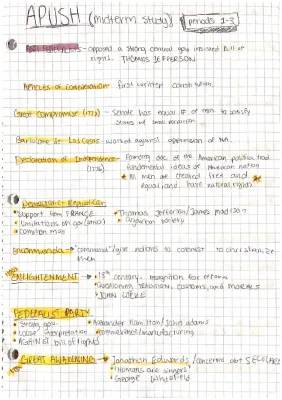 APUSH (midterm study) periods 1-3
- opposed a strong central gov, insisted bill of
rights. THOMAS JEFFERSON
Articles of confederation - first written constitution
Great Compromise (1787) - Senate has equal # of men to satisfy
states w/ small population
Bartolome de Las Casas - worked against oppression of NA.
Declaration of Independence - Founding doc of the American political trad
(1776) fundamental ideas of American nation
All men are created free and
equal and have natural rights
Democratic Republican
Support from FRANCE
Thomas Jefferson/James madison
limitations on gov (small)
agrarian society
common man
Encomienda - "command"/give nations to colonist to christianize
them
ENLIGHTENMENT - 18th century
questioning traditions, customs, and morales
JOHN LOCKE
FEDERALIST PARTY
Strong gov
Alexander Hamilton/John adams
loose interpretation
manufacturing
AGAINST bill of rights
GREAT AWAKENING - Jonathan Edwards /
"Humans are sinners"
George Whitefield